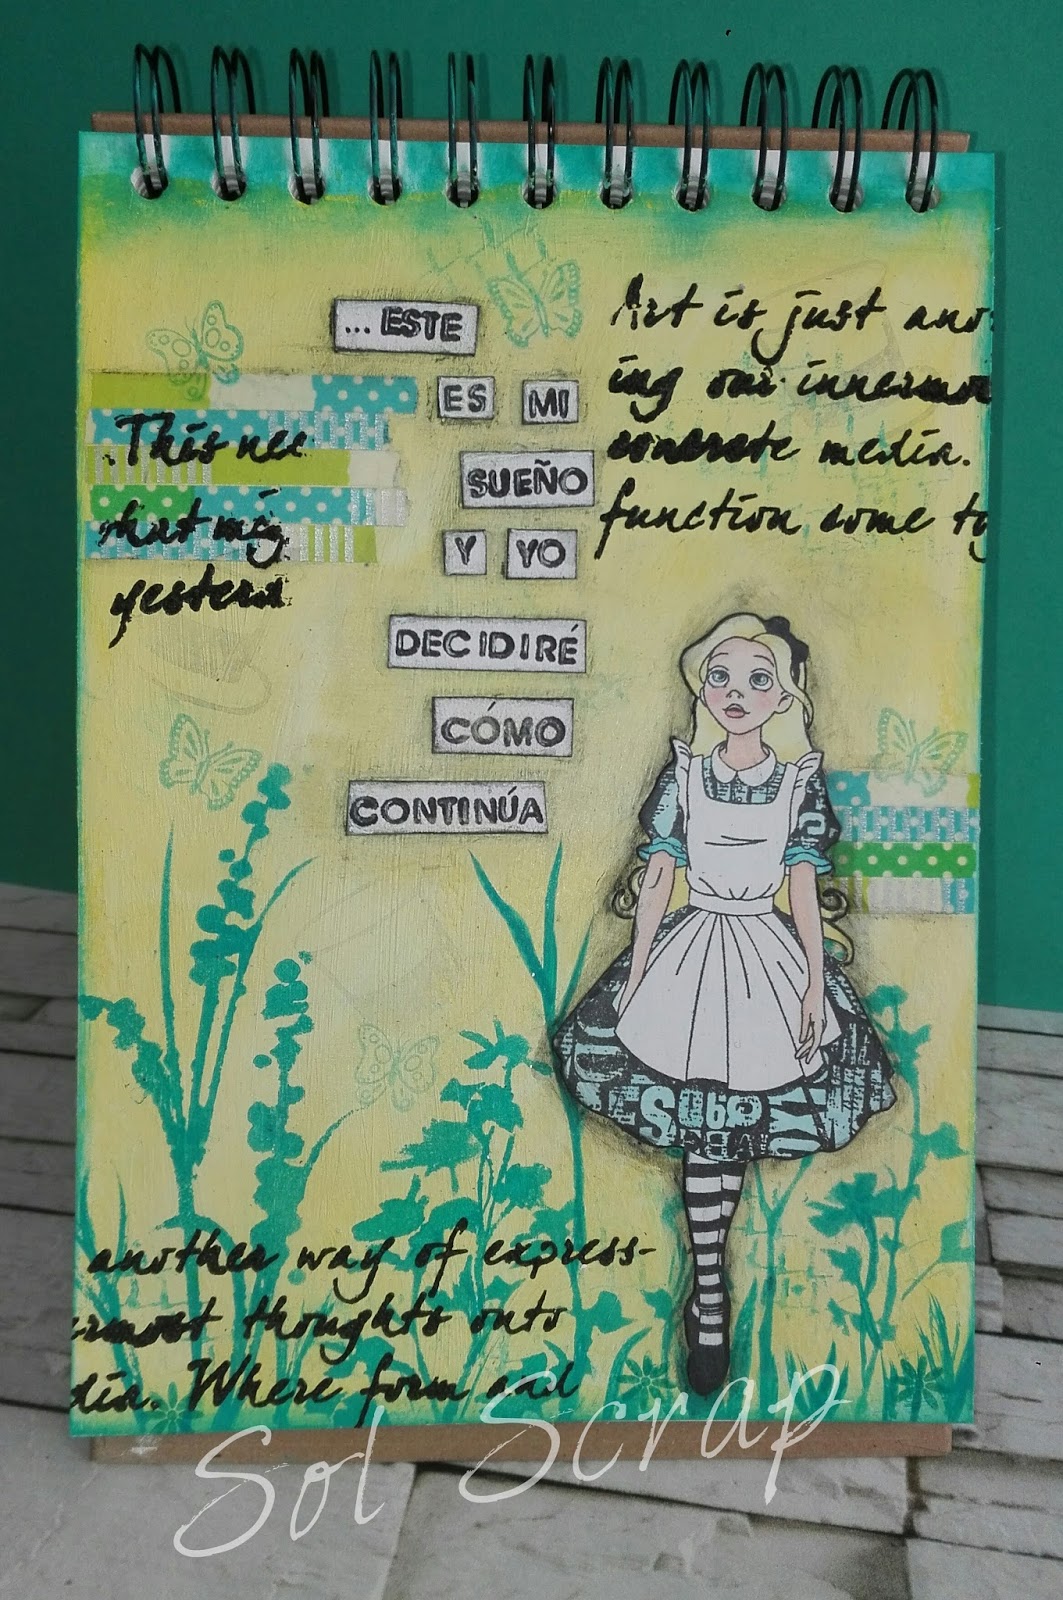 ...ESTE
ES MI
SUEÑO
Y YO
DECIDIRÉ
CÓMO
CONTINÚA
Art is just ano
ing our innermo
concrete media.
function some ty
This nee
that mig
yesterd
another way of express-
ermost thoughts onto
dia. Where form and
Sol Scrap